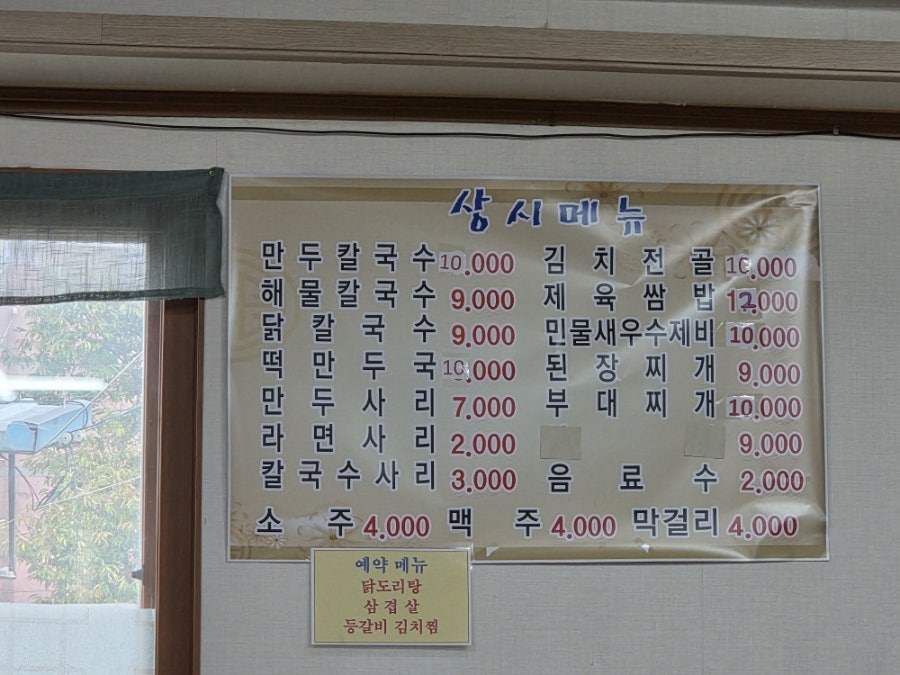 상시메뉴
만두칼국수 10.000 김치전골 10.000
해물칼국수 9.000 제육쌈밥 12.000
닭칼국수 9.000 민물새우수제비 10.000
떡만두국 10.000 된장찌개 9.000
만두사리 7.000 부대찌개 10.000
라면사리 2.000 9.000
칼국수사리 3.000 음료수 2.000
소주 4.000 맥주 4.000 막걸리 4.000
예약 메뉴
닭도리탕
삼겹살
등갈비 김치찜